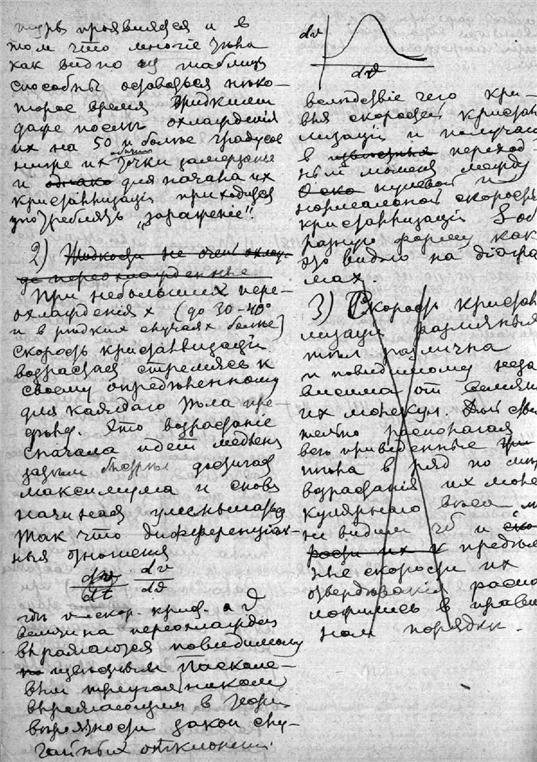 и в
том что многie тѣла
как видно из таблиц
способны оставаться нѣко-
торое время жидкими
даже послѣ охлажденiя
их на 50 и болѣе градусов
ниже их точки замерзанья
и однако для начала их
кристаллизацiи приходится
употреблять „заражение"!
2) Жидкости не очень
переохлажденные
При небольших пере-
охлажденiях (до 30-40°
и в рѣдких случаях болѣе)
скорость кристаллизацiи
возрастает стремясь к
своему опредѣленному
для каждаго тѣла пре-
дѣлу. Это возрастанiе
сначала идет медленно
затѣм быстро достигая
максимума и снова
начиная уменьшаться
так что дифференциаль-
ныя отношения
dv/dt dv/dϑ
гдѣ v скор. крист. а ϑ
величина переохлажденiя
выражаются повидимому
Паскале-
вым треугольником
выражающим в теорiи
вѣроятности закон слу-
чайных отклоненiй.
dv
dϑ
вслѣдствiе чего кри-
вая скоростей кристал
лизацiи и получает
в переход-
ный момент между
нулевой и
нормальной скоростью
кристаллизацiи S об-
разную форму как
это видно на дiаграм
мах.
3) Скорость кристал
лизацiи различных
тѣл различна
и повидимому неза
висима от
их молекул.
располагая
всѣ приведенные
тѣла в ряд по мѣрѣ
возрастанiя их моле
кулярнаго вѣса мы
не видим чтоб и
рости их к предѣль
ные скорости их
отвердѣванiя распо
ложились в правиль
ном порядкѣ.